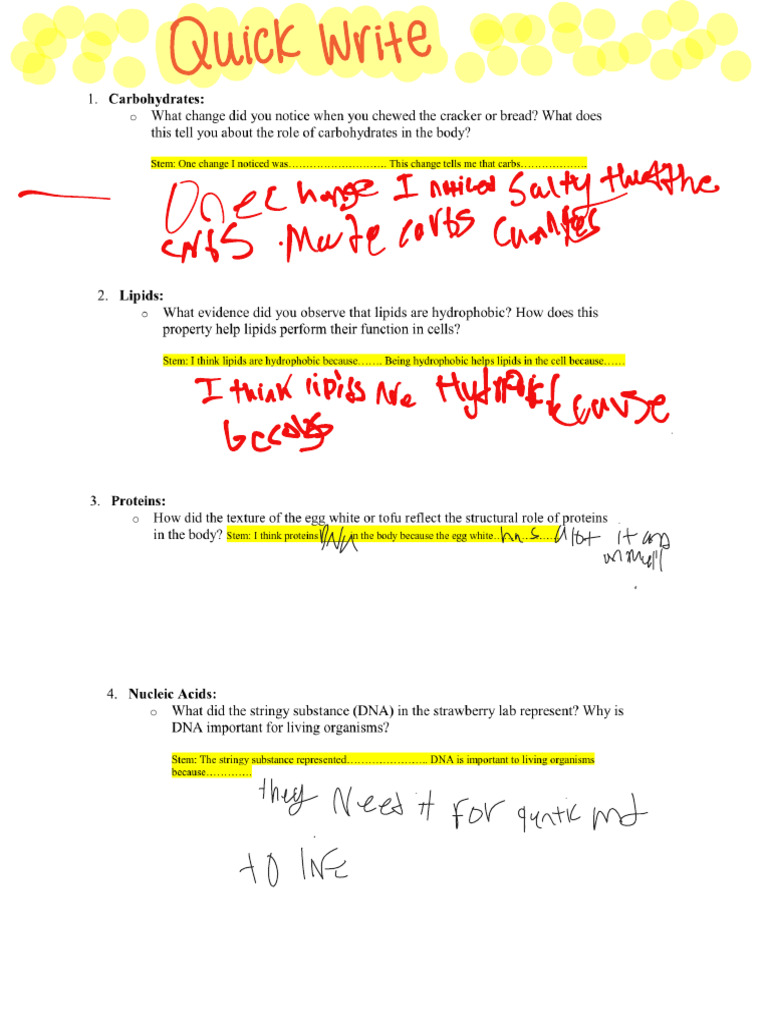 Quick Write
1. Carbohydrates:
o What change did you notice when you chewed the cracker or bread? What does
this tell you about the role of carbohydrates in the body?
Stem: One change I noticed was……………………….. This change tells me that carbs……………….
One change I noticed Salty that the
carbs Made carbs
2. Lipids:
o What evidence did you observe that lipids are hydrophobic? How does this
property help lipids perform their function in cells?
Stem: I think lipids are hydrophobic because……. Being hydrophobic helps lipids in the cell because……
I think lipids are
3. Proteins:
o How did the texture of the egg white or tofu reflect the structural role of proteins
in the body? Stem: I think proteins in the body because the egg white… A lot it and
4. Nucleic Acids:
o What did the stringy substance (DNA) in the strawberry lab represent? Why is
DNA important for living organisms?
Stem: The stringy substance represented………………….. DNA is important to living organisms
because………….
they Need it For
TO